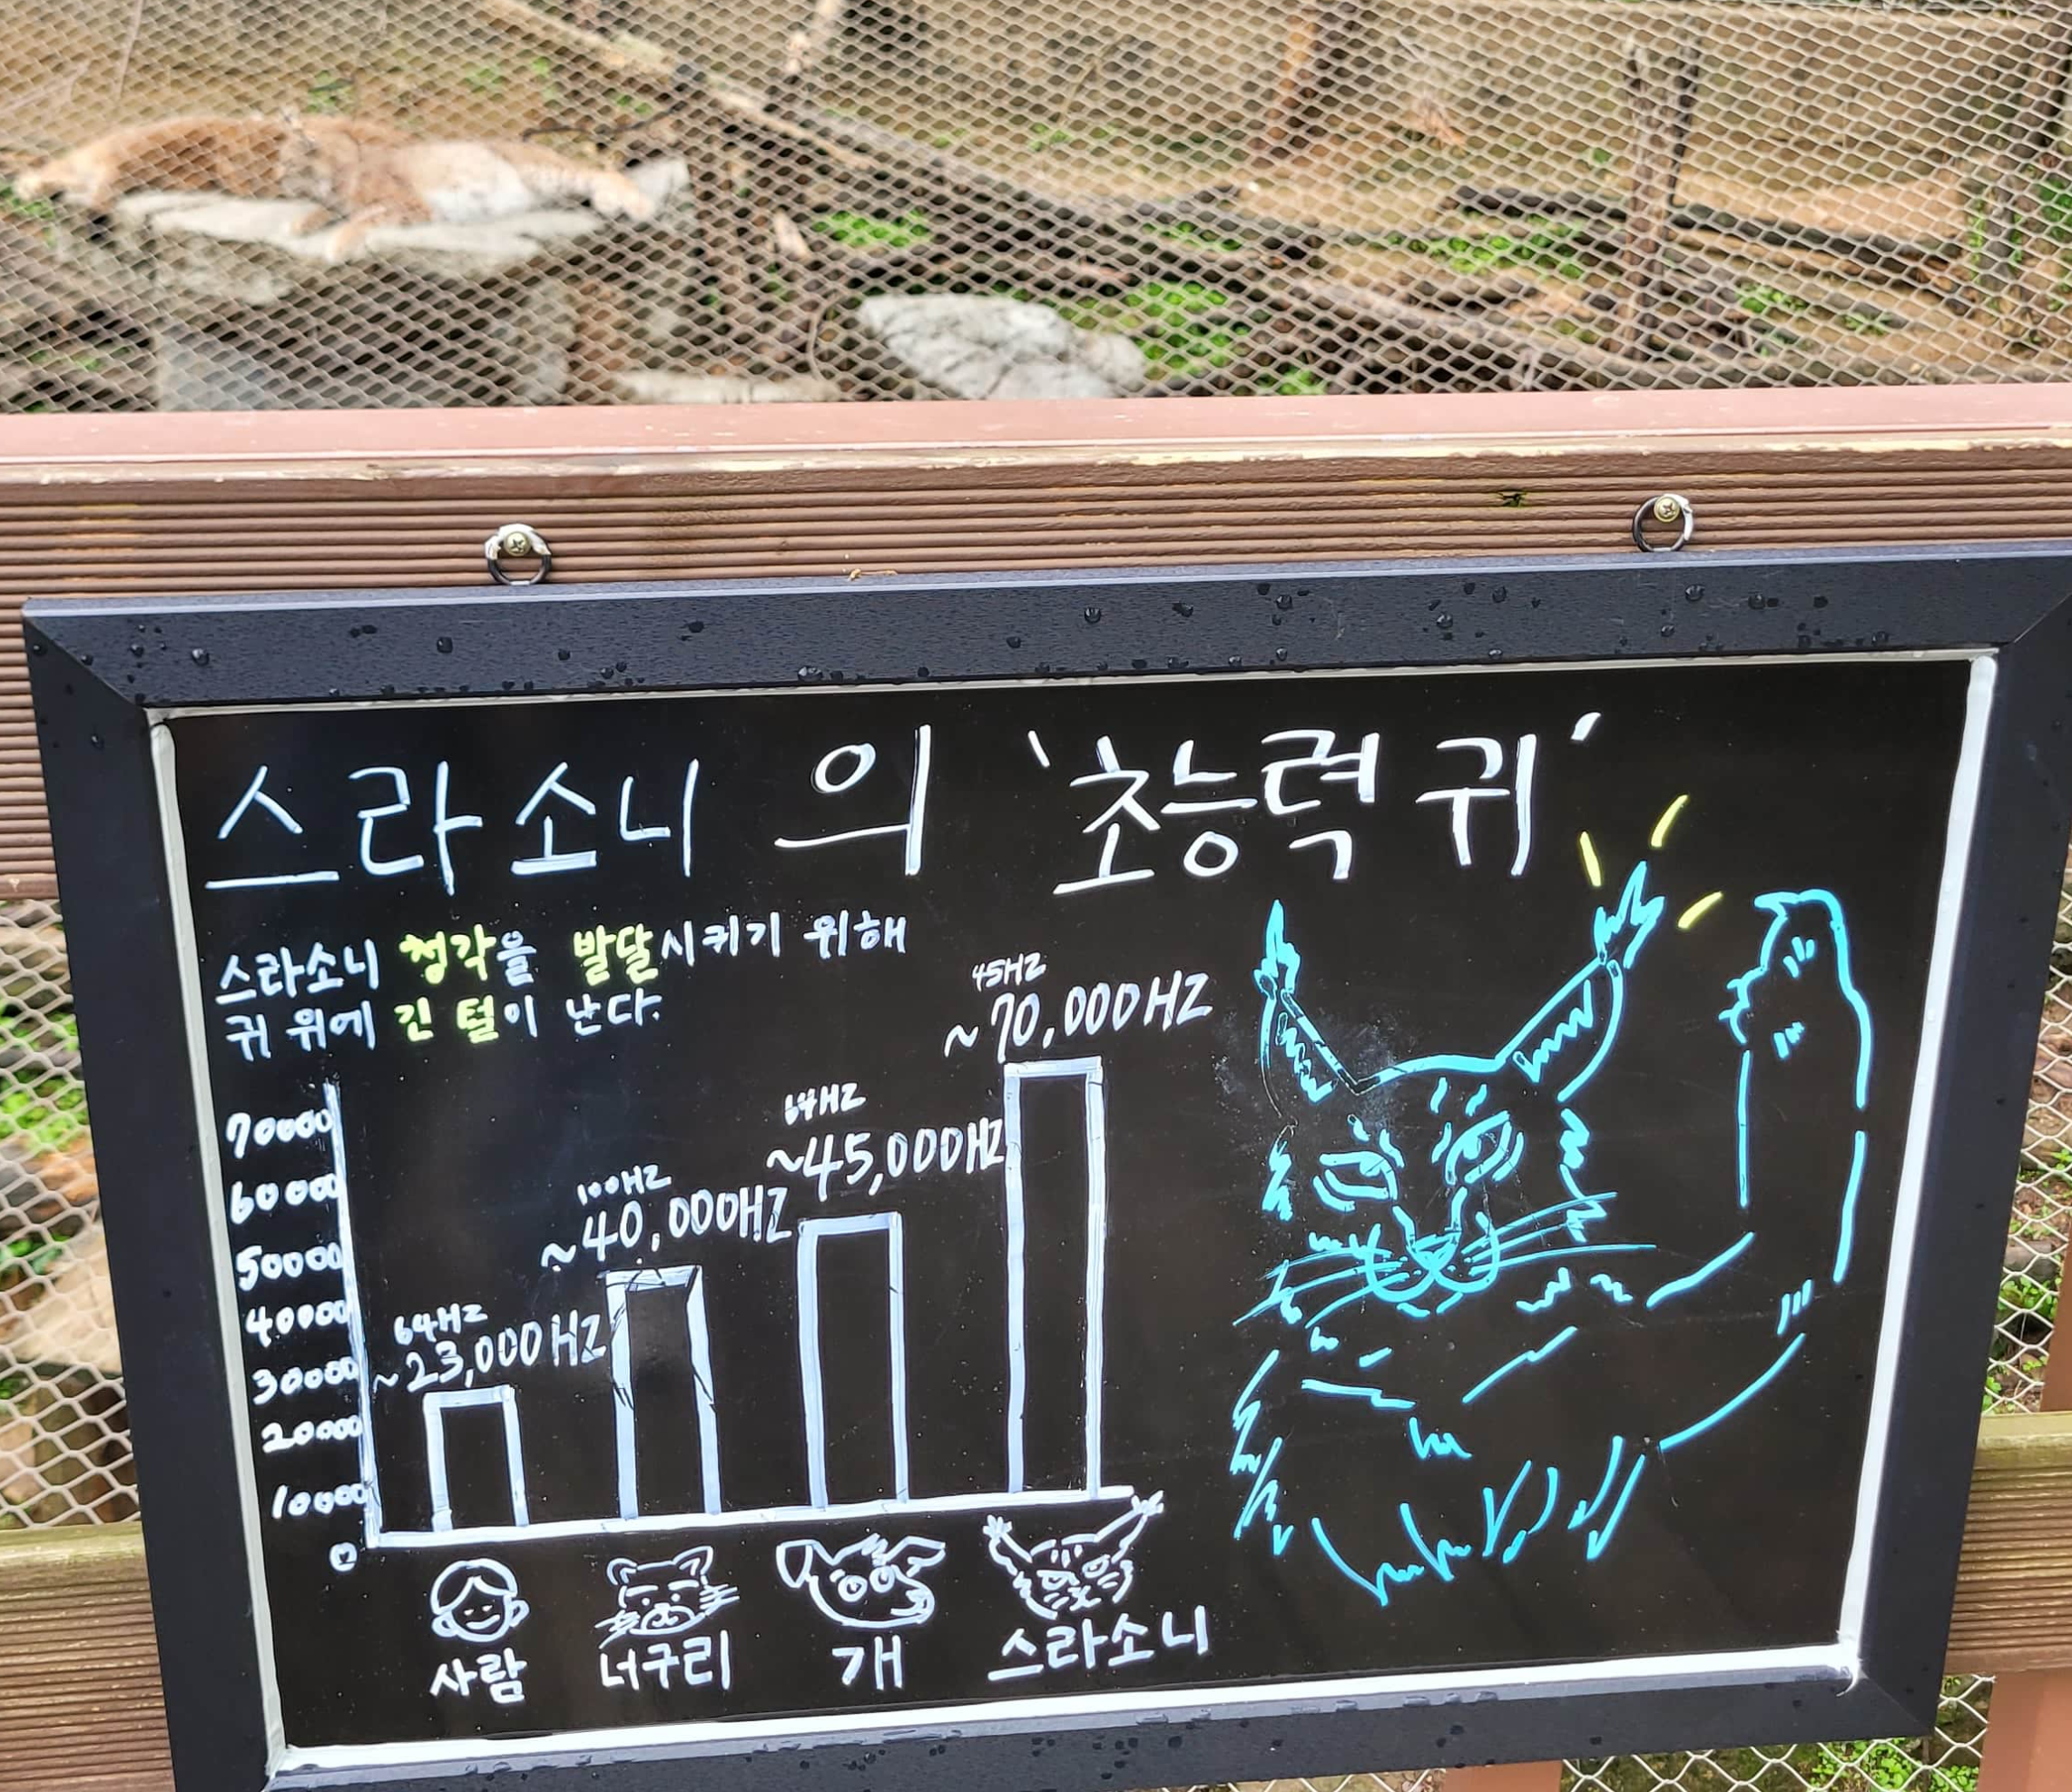 스라소니 의 '초능력 귀'
스라소니 청각을 발달시키기 위해
귀 위에 긴 털이 난다.
70000
60000
50000
40000
30000
20000
10000
0
64HZ
~23,000HZ
100HZ
~40,000HZ
64HZ
~45,000HZ
45HZ
~70,000HZ
사람
너구리
개
스라소니